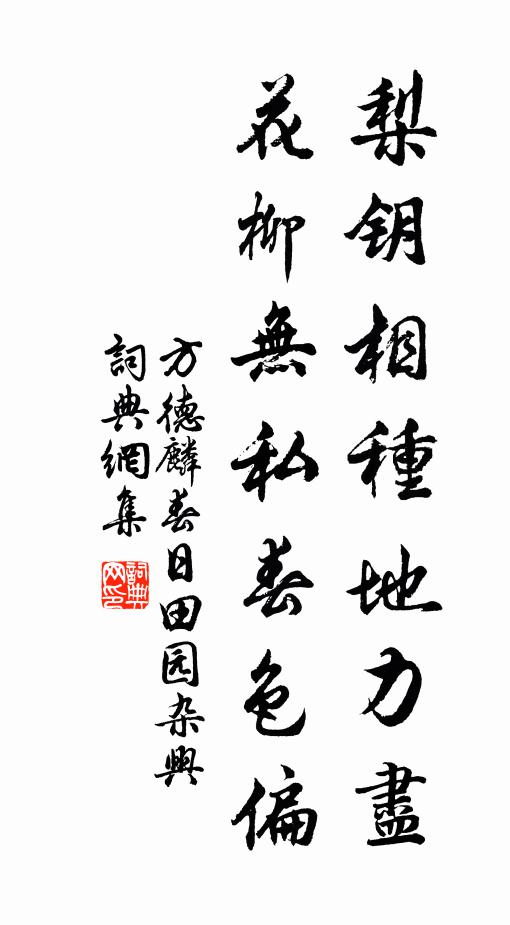 梨钥相種地力盡
花柳無私春色偏
方德麟春日田园杂興
詞典網集
詞典网印